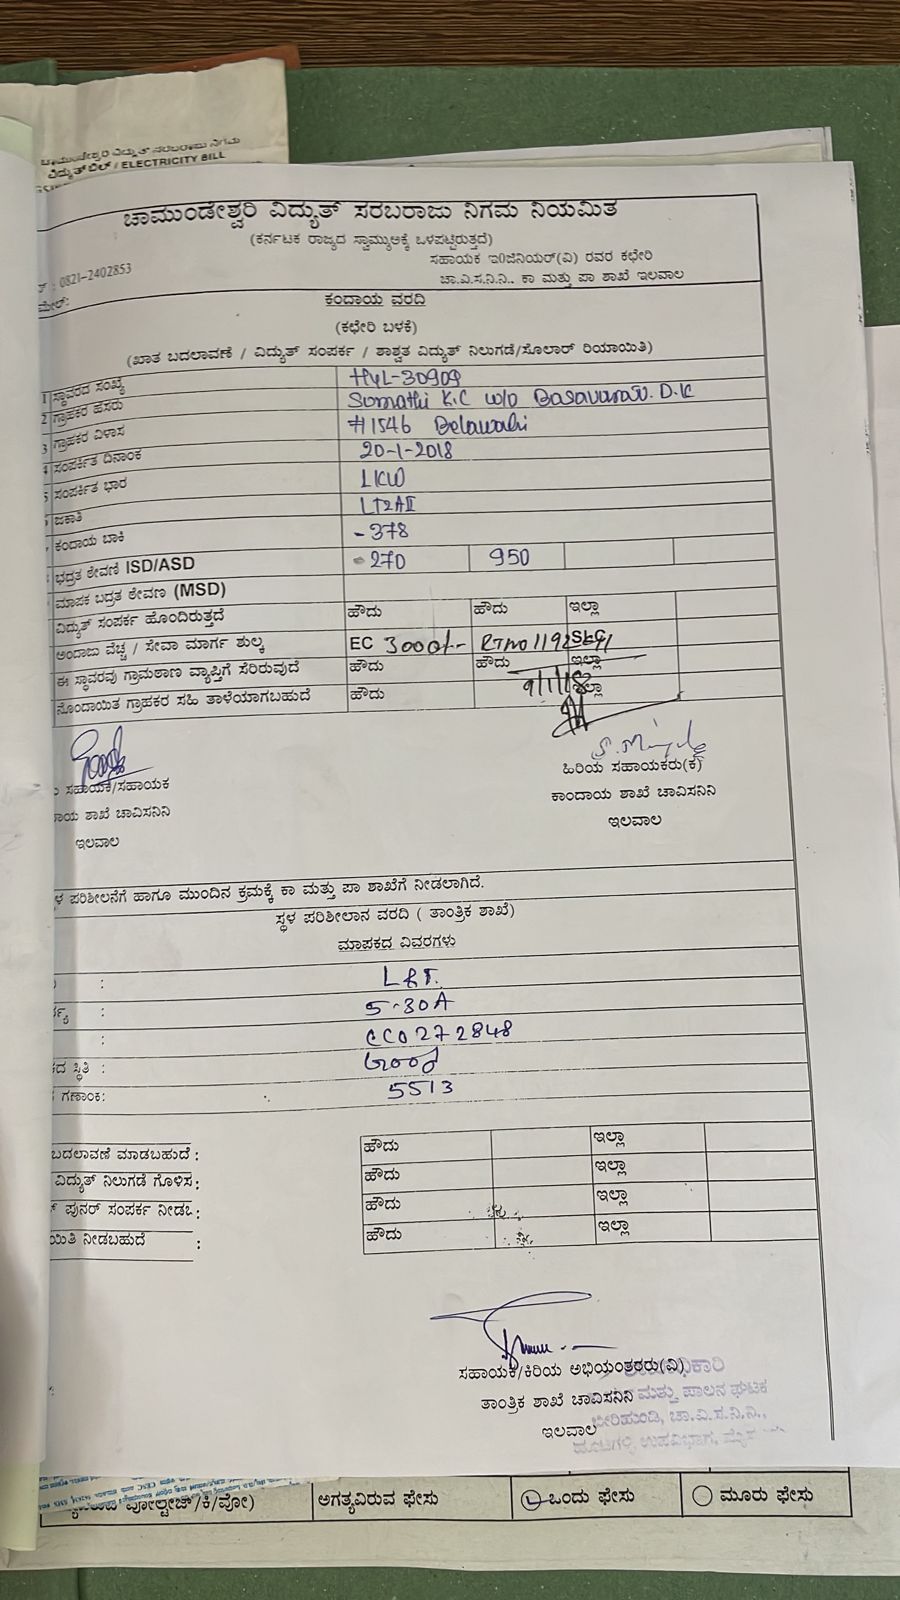 ವಿದ್ಯುತ್ ಬಿಲ್ / ELECTRICITY BILL
ಚಾಮುಂಡೇಶ್ವರಿ ವಿದ್ಯುತ್ ಸರಬರಾಜು ನಿಗಮ ನಿಯಮಿತ
(ಕರ್ನಟಕ ರಾಜ್ಯದ ಸ್ವಾಮ್ಯಕ್ಕೆ ಒಳಪಟ್ಟಿರುತ್ತದೆ)
ಸಹಾಯಕ ಇ0ಜಿನಿಯರ್(ವಿ) ರವರ ಕಛೇರಿ
: 0821-2402853
ಚಾ.ವಿ.ಸ.ನಿ.ನಿ., ಕಾ ಮತ್ತು ಪಾ ಶಾಖೆ ಇಲವಾಲ
ಮೇಲ್:
ಕಂದಾಯ ವರದಿ
(ಕಛೇರಿ ಬಳಕೆ)
(ಖಾತ ಬದಲಾವಣೆ / ವಿದ್ಯುತ್ ಸಂಪರ್ಕ / ಶಾಶ್ವತ ವಿದ್ಯುತ್ ನಿಲುಗಡೆ/ಸೋಲಾರ್ ರಿಯಾಯಿತಿ)
1 ಸ್ಥಾವರದ ಸಂಖ್ಯೆ HYL-30909
2 ಗ್ರಾಹಕರ ಹೆಸರು Sumathi K.C w/o Basavaraj. D.K
3 ಗ್ರಾಹಕರ ವಿಳಾಸ #1546 Belawadi
4 ಸಂಪರ್ಕಿತ ದಿನಾಂಕ 20-1-2018
5 ಸಂಪರ್ಕಿತ ಭಾರ 1KW
ಜಕಾತಿ LT2AII
ಕಂದಾಯ ಬಾಕಿ -378
ಭದ್ರತ ಠೇವಣಿ ISD/ASD 270 950
ಮಾಪಕ ಬದ್ರತ ಠೇವಣ (MSD)
ವಿದ್ಯುತ್ ಸಂಪರ್ಕ ಹೊಂದಿರುತ್ತದೆ ಹೌದು ಹೌದು ಇಲ್ಲಾ
ಅಂದಾಜು ವೆಚ್ಚ / ಸೇವಾ ಮಾರ್ಗ ಶುಲ್ಕ EC 3000/-
ಈ ಸ್ಥಾವರವು ಗ್ರಾಮಠಾಣ ವ್ಯಾಪ್ತಿಗೆ ಸೆರಿರುವುದೆ ಹೌದು ಹೌದು ಇಲ್ಲಾ
ನೊಂದಾಯಿತ ಗ್ರಾಹಕರ ಸಹಿ ತಾಳೆಯಾಗಬಹುದೆ ಹೌದು 9/1/18
ಸಹಾಯಕ/ಸಹಾಯಕ
ಹಿರಿಯ ಸಹಾಯಕರು(ಕ)
ಶಾಖೆ ಚಾವಿಸನಿನಿ
ಕಾಂದಾಯ ಶಾಖೆ ಚಾವಿಸನಿನಿ
ಇಲವಾಲ
ಇಲವಾಲ
ಪರಿಶೀಲನೆಗೆ ಹಾಗೂ ಮುಂದಿನ ಕ್ರಮಕ್ಕೆ ಕಾ ಮತ್ತು ಪಾ ಶಾಖೆಗೆ ನೀಡಲಾಗಿದೆ.
ಸ್ಥಳ ಪರಿಶೀಲಾನ ವರದಿ ( ತಾಂತ್ರಿಕ ಶಾಖೆ)
ಮಾಪಕದ ವಿವರಗಳು
: L&T.
: 5-30A
: CC0272848
ಸ್ಥಿತಿ : Good
ಗಣಾಂಕ: 5513
ಬದಲಾವಣೆ ಮಾಡಬಹುದೆ : ಹೌದು ಇಲ್ಲಾ
ವಿದ್ಯುತ್ ನಿಲುಗಡೆ ಗೊಳಿಸ : ಹೌದು ಇಲ್ಲಾ
ಪುನರ್ ಸಂಪರ್ಕ ನೀಡಬ : ಹೌದು ಇಲ್ಲಾ
ಯಿತಿ ನೀಡಬಹುದೆ : ಹೌದು ಇಲ್ಲಾ
ಸಹಾಯಕ/ಕಿರಿಯ ಅಭಿಯಂತರರು(ವಿ)
ತಾಂತ್ರಿಕ ಶಾಖೆ ಚಾವಿಸನಿನಿ ಮತ್ತು ಪಾಲನ ಘಟಕ
ಇಲವಾಲ
ಅಗತ್ಯವಿರುವ ಫೇಸು ಒಂದು ಫೇಸು ಮೂರು ಫೇಸು